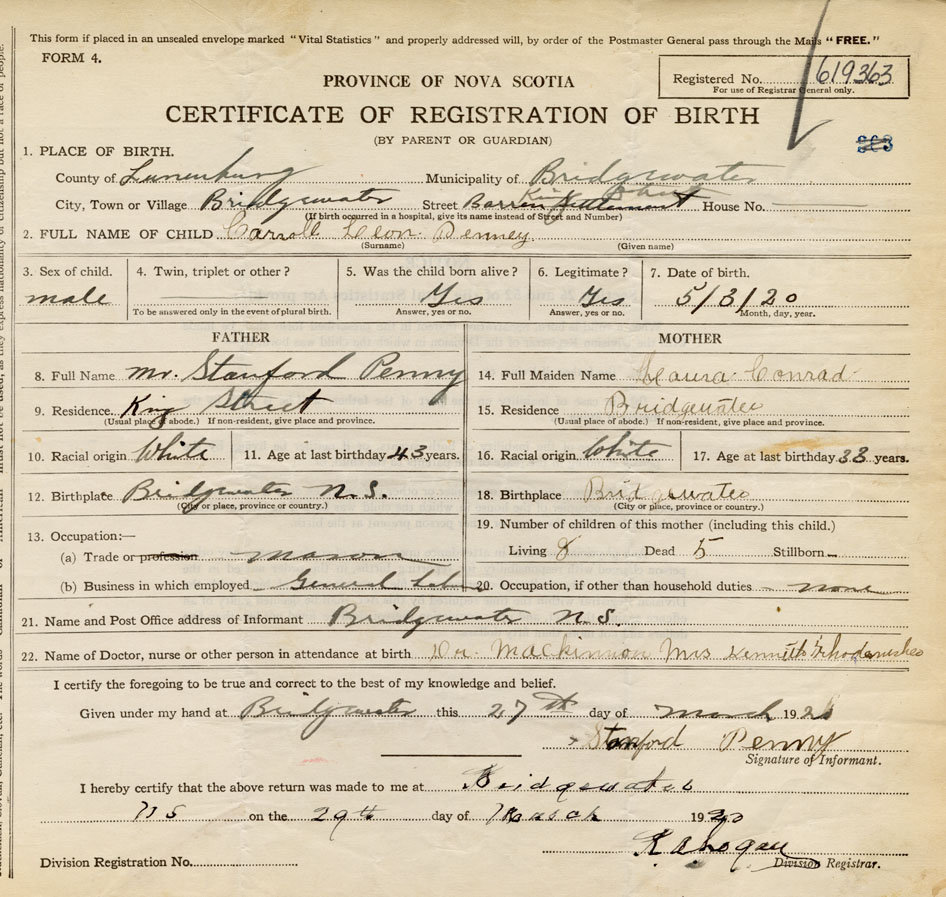 This form if placed in an unsealed envelope marked "Vital Statistics" and properly addressed will, by order of the Postmaster General pass through the Mails "FREE."
FORM 4.
PROVINCE OF NOVA SCOTIA
Registered No. 619363
For use of Registrar General only.
CERTIFICATE OF REGISTRATION OF BIRTH
(BY PARENT OR GUARDIAN)
1. PLACE OF BIRTH.
County of Lunenburg Municipality of Bridgewater
City, Town or Village Bridgewater Street King Street House No.
(If birth occurred in a hospital, give its name instead of Street and Number)
2. FULL NAME OF CHILD Carroll Leon Penney
(Surname) (Given name)
3. Sex of child. 4. Twin, triplet or other? 5. Was the child born alive? 6. Legitimate? 7. Date of birth.
male Yes Yes 5/3/20
To be answered only in the event of plural birth. Answer, yes or no. Answer, yes or no. Month, day, year.
FATHER MOTHER
8. Full Name Mr. Stanford Penny 14. Full Maiden Name Laura Conrad
9. Residence. King Street 15. Residence Bridgewater
(Usual place of abode.) If non-resident, give place and province. (Usual place of abode.) If non-resident, give place and province.
10. Racial origin White 11. Age at last birthday 43 years. 16. Racial origin White 17. Age at last birthday 33 years.
12. Birthplace Bridgewater N.S. 18. Birthplace Bridgewater
(City or place, province or country.) (City or place, province or country.)
13. Occupation:— 19. Number of children of this mother (including this child.)
(a) Trade or profession mason Living 8 Dead 5 Stillborn
(b) Business in which employed General 20. Occupation, if other than household duties none
21. Name and Post Office address of Informant Bridgewater N.S.
22. Name of Doctor, nurse or other person in attendance at birth Dr. Mackinnon Mrs Kenneth
I certify the foregoing to be true and correct to the best of my knowledge and belief.
Given under my hand at Bridgewater this 27th day of March 192
Stanford Penny
Signature of Informant.
I hereby certify that the above return was made to me at Bridgewater
NS on the 29th day of March 1920
Division Registrar.
Division Registration No.